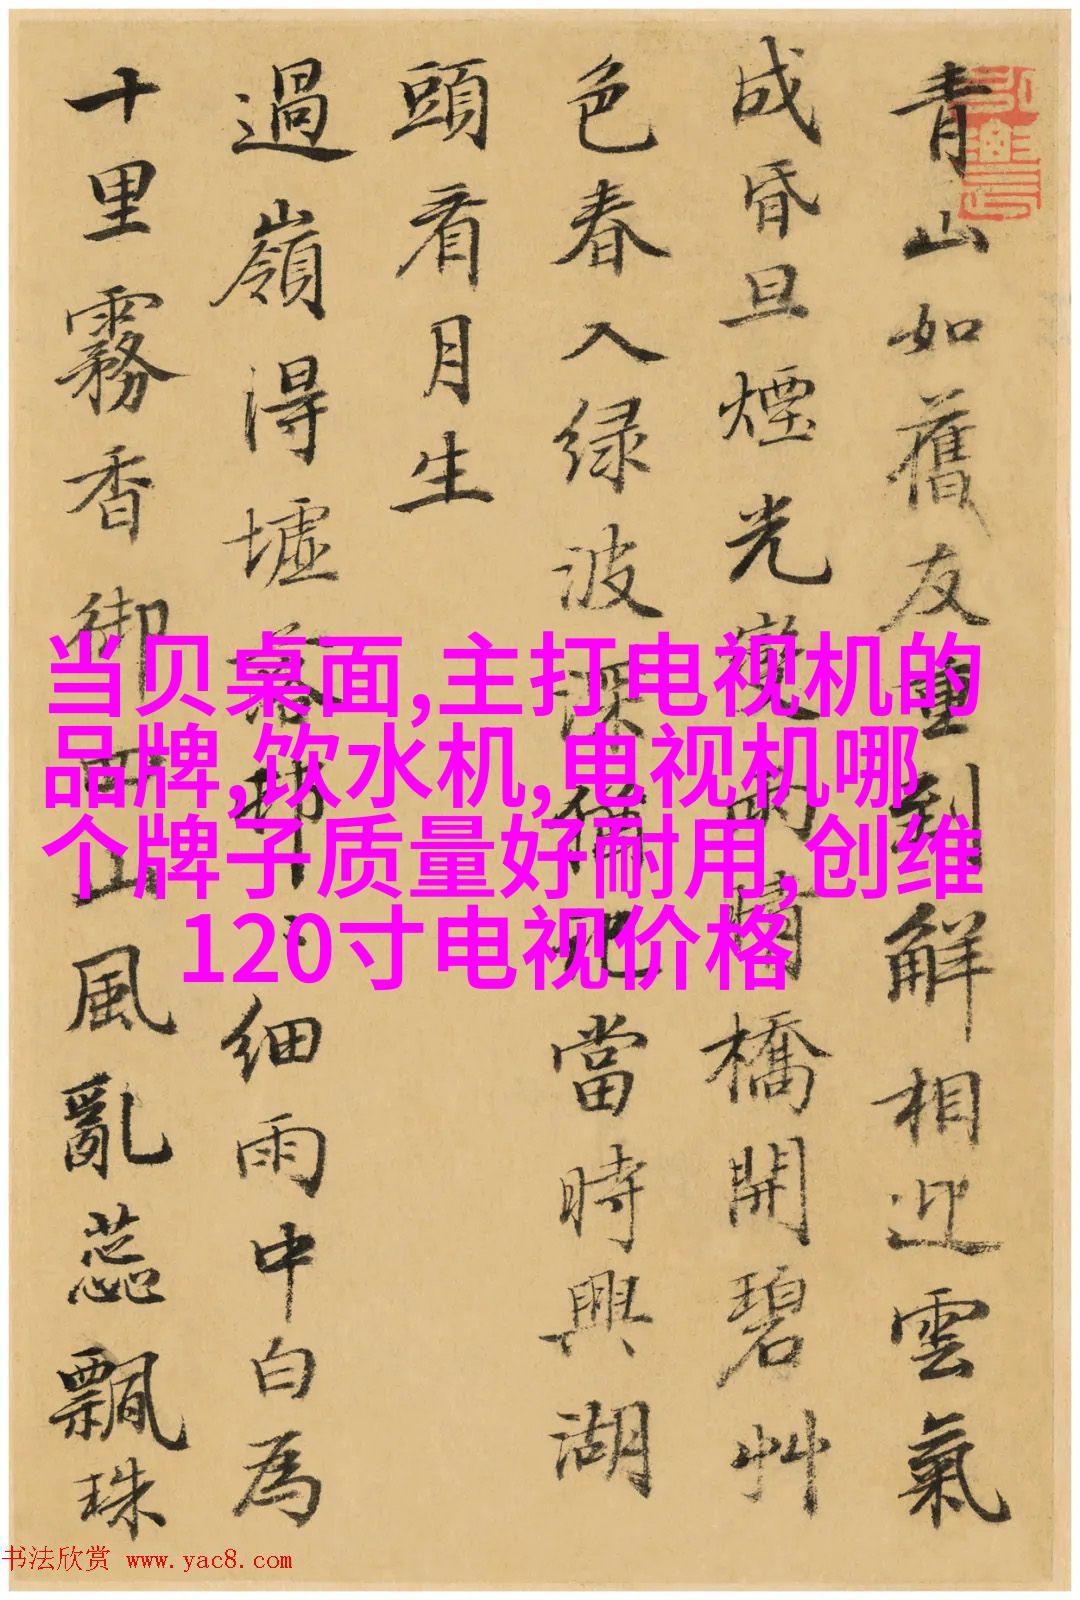 青山如舊友重到解相迎雲氣
成昏旦煙光變雨晴橋開碧艸
色春入绿波深猶記當時興湖
頭看月生
過嶺得墟落邨細雨中白為
十里霧香御可山風亂蕊飄珠
当贝桌面,主打电视机的
品牌,饮水机,电视机哪
个牌子质量好耐用,创维
120寸电视价格
书法欣赏 www.yac8.com